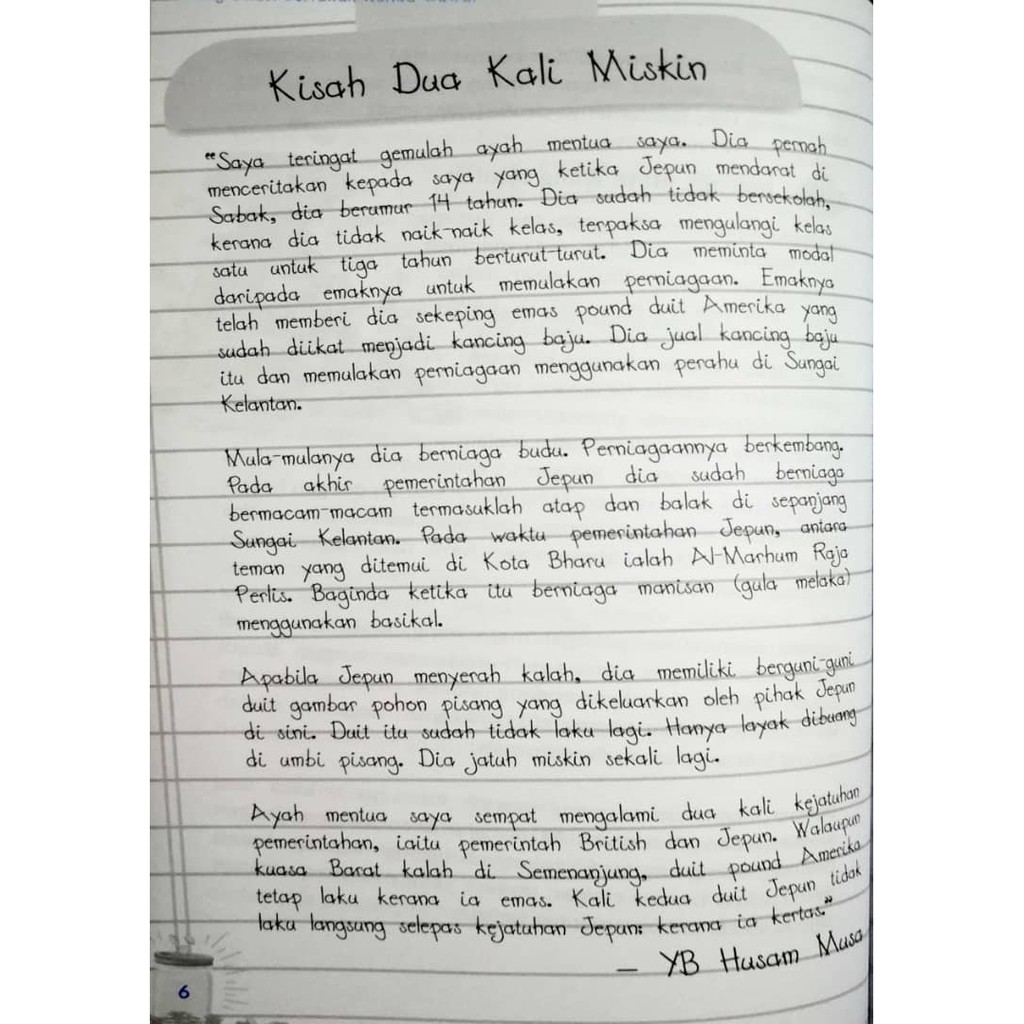 Kisah Dua Kali Miskin
"Saya teringat gemulah ayah mentua saya. Dia pernah
menceritakan kepada saya yang ketika Jepun mendarat di
Sabak, dia berumur 14 tahun. Dia sudah tidak bersekolah,
kerana dia tidak naik-naik kelas, terpaksa mengulangi kelas
satu untuk tiga tahun berturut-turut. Dia meminta modal
daripada emaknya untuk memulakan perniagaan. Emaknya
telah memberi dia sekeping emas pound duit Amerika yang
sudah diikat menjadi kancing baju. Dia jual kancing baju
itu dan memulakan perniagaan menggunakan perahu di Sungai
Kelantan.
Mula-mulanya dia berniaga budu. Perniagaannya berkembang.
Pada akhir pemerintahan Jepun dia sudah berniaga
bermacam-macam termasuklah atap dan balak di sepanjang
Sungai Kelantan. Pada waktu pemerintahan Jepun, antara
teman yang ditemui di Kota Bharu ialah Al-Marhum Raja
Perlis. Baginda ketika itu berniaga manisan (gula melaka)
menggunakan basikal.
Apabila Jepun menyerah kalah, dia memiliki berguni-guni
duit gambar pohon pisang yang dikeluarkan oleh pihak Jepun
di sini. Duit itu sudah tidak laku lagi. Hanya layak dibuang
di umbi pisang. Dia jatuh miskin sekali lagi.
Ayah mentua saya sempat mengalami dua kali kejatuhan
pemerintahan, iaitu pemerintah British dan Jepun. Walaupun
kuasa Barat kalah di Semenanjung, duit pound Amerika
tetap laku kerana ia emas. Kali kedua duit Jepun tidak
laku langsung selepas kejatuhan Jepun: kerana ia kertas."
– YB Husam Musa
6